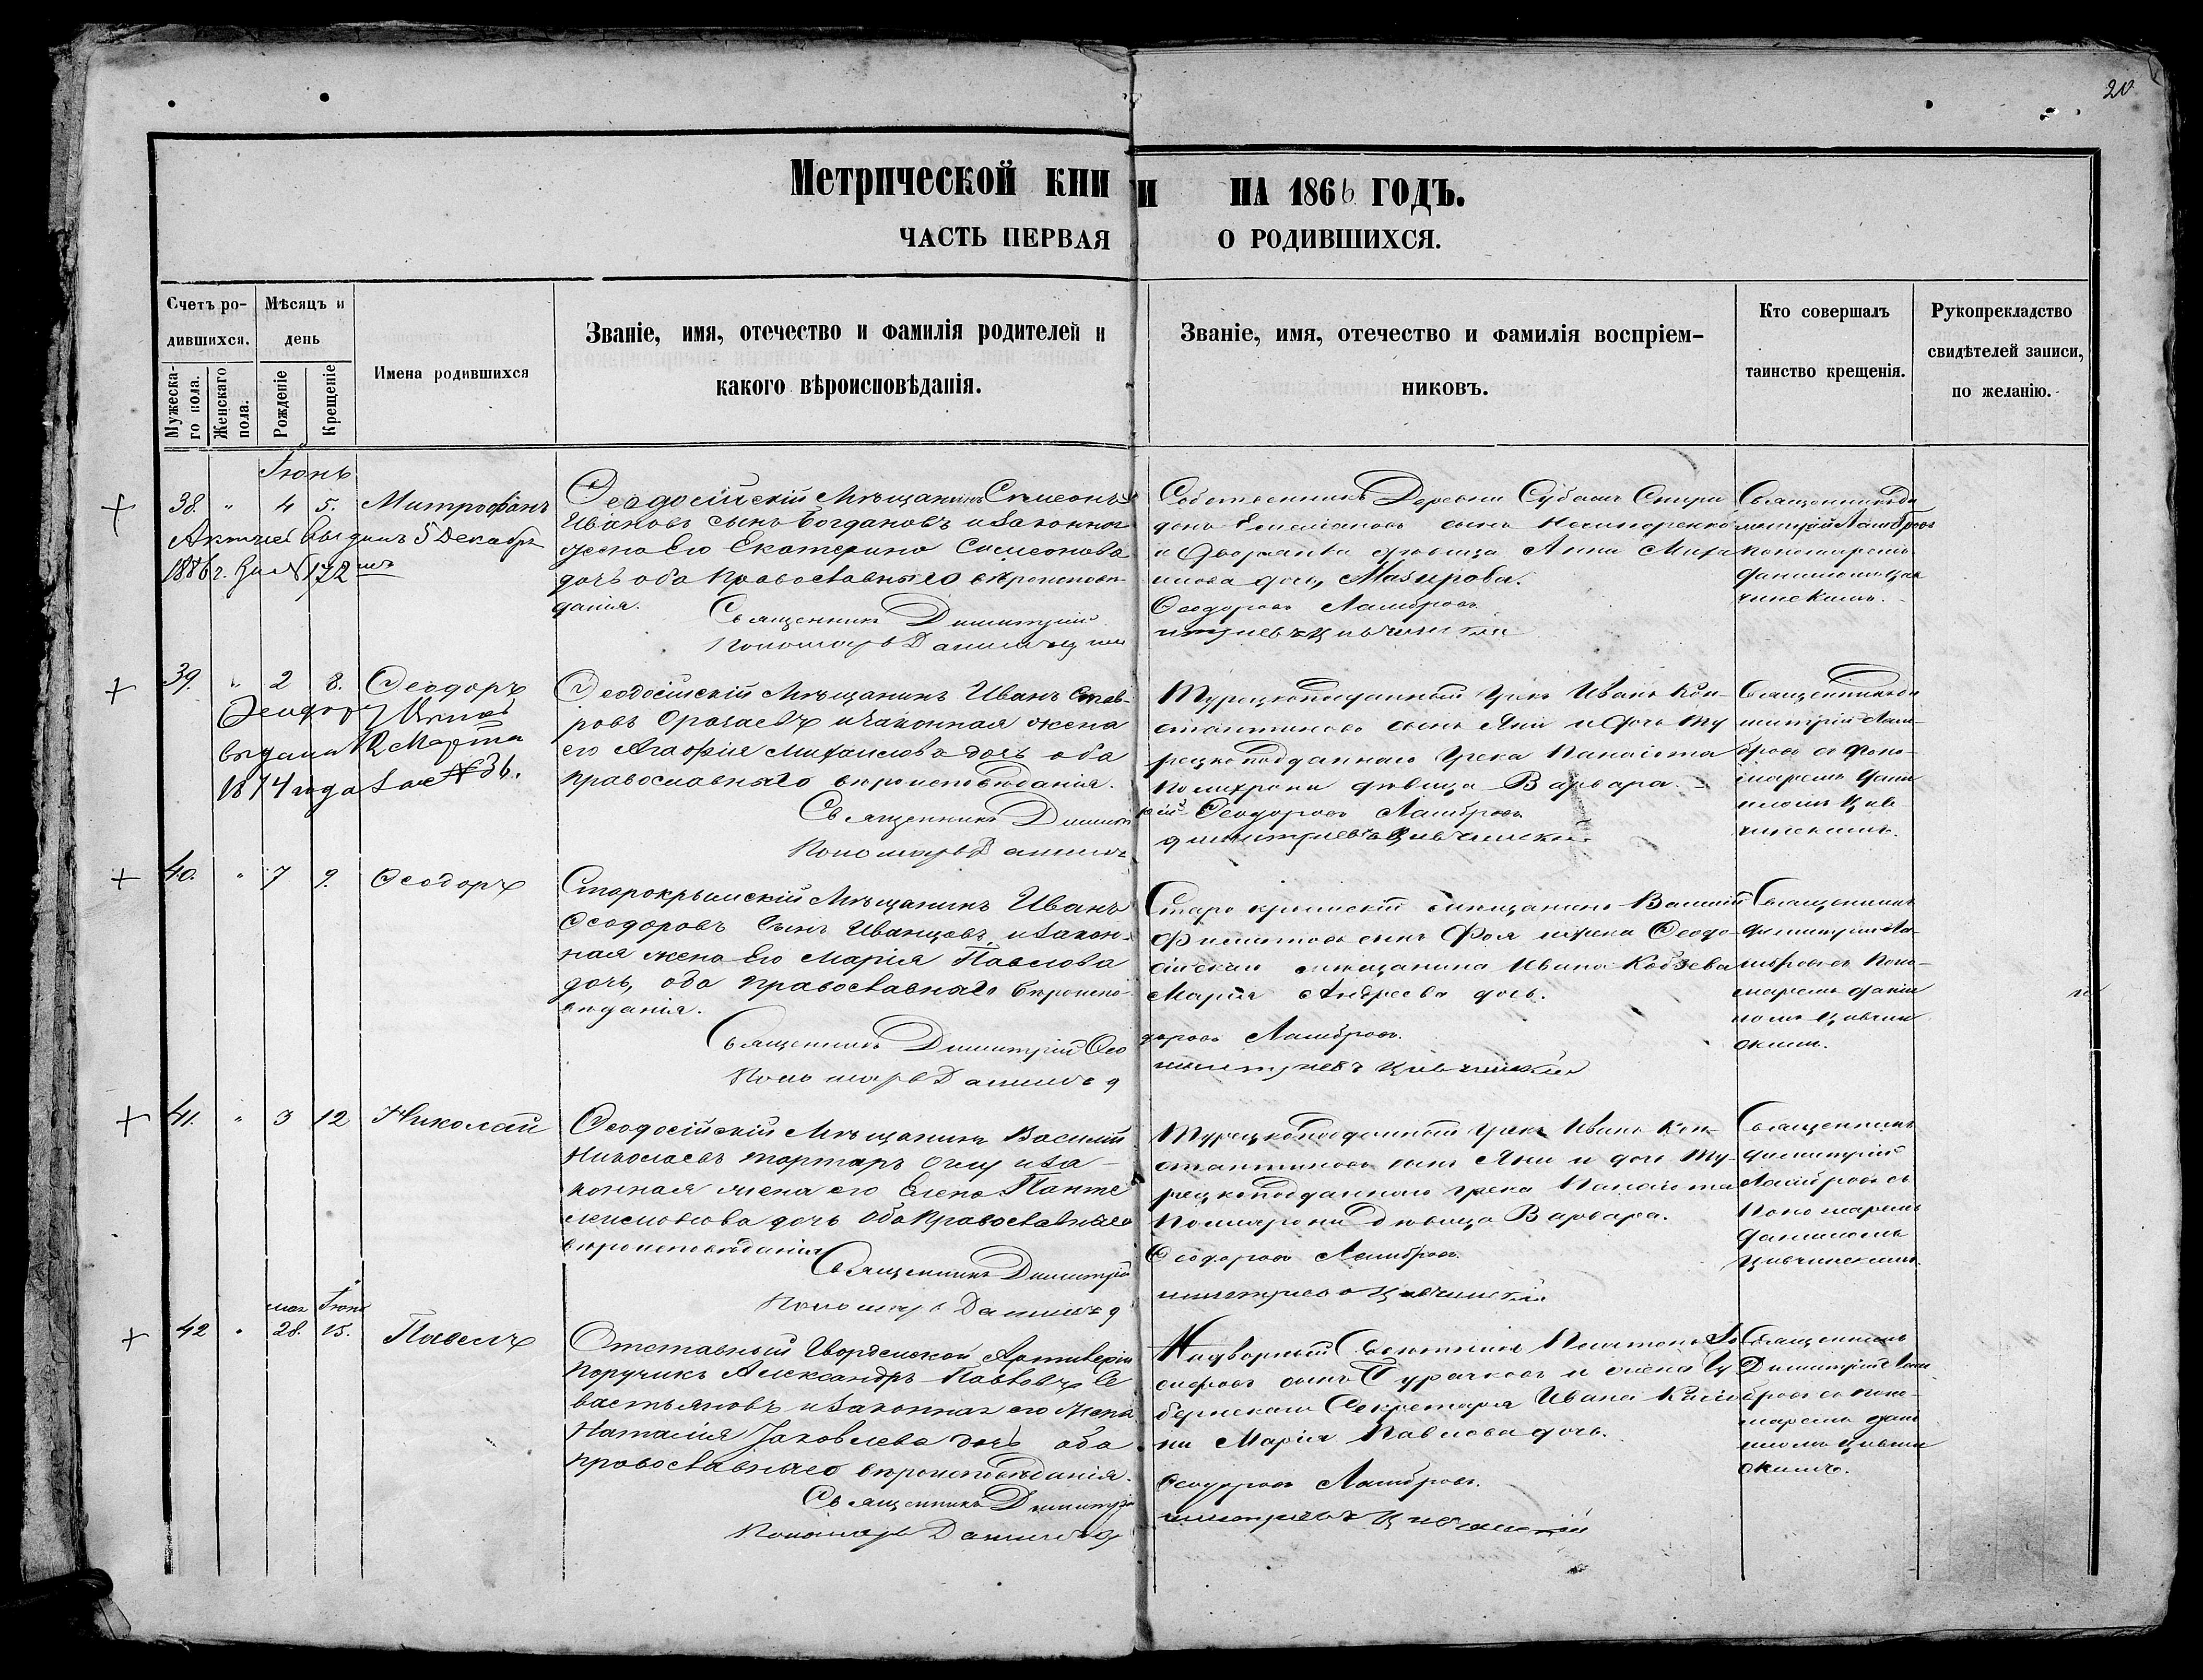 20
Метрической кни и НА 1866 ГОДЪ.
ЧАСТЬ ПЕРВАЯ О РОДИВШИХСЯ.
Счетъ ро-
дившихся.
Мужеска-
го пола.
Женскаго
пола.
Мѣсяцъ и
день
Рожденіе
Крещеніе
Имена родившихся
Званіе, имя, отечество и фамилія родителей и
какого вѣроисповѣданія.
Званіе, имя, отечество и фамилія воспріем-
никовъ.
Кто совершалъ
таинство крещенія.
Рукоприкладство
свидѣтелей записи,
по желанію.
Іюнь
38. " 4 5. Митрофанъ
Актъ выданъ 5 Декабр
1886 г. за N 172
Ѳеодосійскій Мѣщанинъ Симеонъ
Ивановъ сынъ Богдановъ и законная
жена Его Екатерина Симеонова
дочь оба православнаго вѣроисповѣ-
данія.
Священникъ Димитрій
Пономарь Даніилъ
Собственникъ Деревни
сынъ
и Дворянка дѣвица Анна
дочь, Мазирова.
Ѳеодоровъ Ламбровъ
Священникъ Ди
митрій Ламбровъ
пономаремъ
Даніиломъ Цив
чинскимъ.
39. " 2 8. Ѳеодоръ
выдана 12 Марта
1874 года за N 36.
Ѳеодосійскій Мѣщанинъ Иванъ Став-
ровъ и законная жена
его Агафія Михаилова дочь оба
православнаго вѣроисповѣданія.
Священникъ Димит
Пономарь Даніилъ
Турецкоподданный Грекъ Иванъ Кон-
стантиновъ сынъ Яни и дочь Ту
рецкоподданнаго Грека Панаіота
Полихрони дѣвица Варвара.
рій Ѳеодоровъ Ламбровъ
Димитріевъ Цивчинскій
Священникъ Ди
митрій Лам-
бровъ съ Поно-
маремъ Дани
иломъ Цив
чинскимъ.
40. " 7 9. Ѳеодоръ
Старокрымскій Мѣщанинъ Иванъ
Ѳеодоровъ Сынъ Иванцовъ и закон-
ная жена Его Марія Павлова
дочь, оба православнаго вѣроиспо-
вѣданія.
Священникъ Димитрій Ѳео
Пономарь Даніилъ Д
Старокрымскій мѣщанинъ Василій
сынъ Фоля и жена Ѳеодо-
сійскаго мѣщанина Ивана Кобзева
Марія Андреева дочь.
доровъ Ламбровъ.
имитріевъ Цивчинскій
Священникъ
Димитрій Ла-
мбровъ съ Поно-
маремъ Дании
ломъ Цивчин
скимъ.
41. " 3 12 Николай
Ѳеодосійскій Мѣщанинъ Василій
Николаевъ Тартаръ Оглу и за-
конная жена его Елена Панте
леимонова дочь оба православнаго
вѣроисповѣданія
Священникъ Димитрій
Пономарь Даніилъ Д
Турецкоподданный Грекъ Иванъ Кон-
стантиновъ сынъ Яни и дочь Ту-
рецкоподданнаго Грека Панаіота
Полихрони дѣвица Варвара.
Ѳеодоровъ Ламбровъ.
имитріевъ Цивчинскій
Священникъ
Димитрій
Ламбровъ съ
Пономаремъ
Даніиломъ
Цивчинскимъ.
мая Іюня
42 " 28. 15. Павелъ
Отставный Гвардейской Артилеріи
Поручикъ Александръ Павловъ Се
вастьяновъ и законная его жена
Наталія Іаковлева дочь оба
православнаго вѣроисповѣданія.
Священникъ Димитрій
Пономарь Даніилъ Д
Надворный Совѣтникъ Платонъ
сынъ и жена Гу
бернскаго Секретаря Ивана
ни Марія Павлова дочь.
Ѳеодоровъ Ламбровъ.
имитріевъ Цивчинскій
Священникъ
Димитрій Лам
бровъ съ Поно-
маремъ Дані
иломъ Цивчин
скимъ.